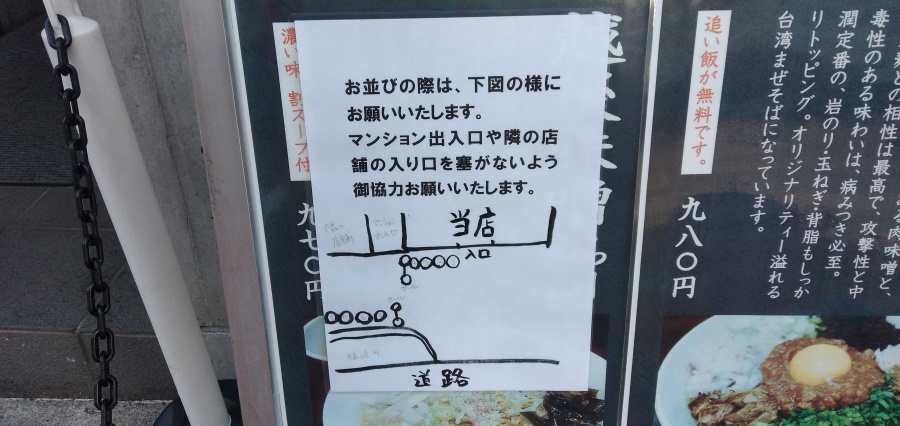 お並びの際は、下図の様に
お願いいたします。
マンション出入口や隣の店
舗の入り口を塞がないよう
御協力お願いいたします。
当店
入口
道路
濃い味
割スープ付
九七〇円
追い飯が無料です。
九八〇円
相性は最高で、攻撃性と中
毒性のある味わいは、病みつき必至。
潤定番の、岩のり・玉ねぎ・背脂もしっか
りトッピング。オリジナリティー溢れる
台湾まぜそばになっています。